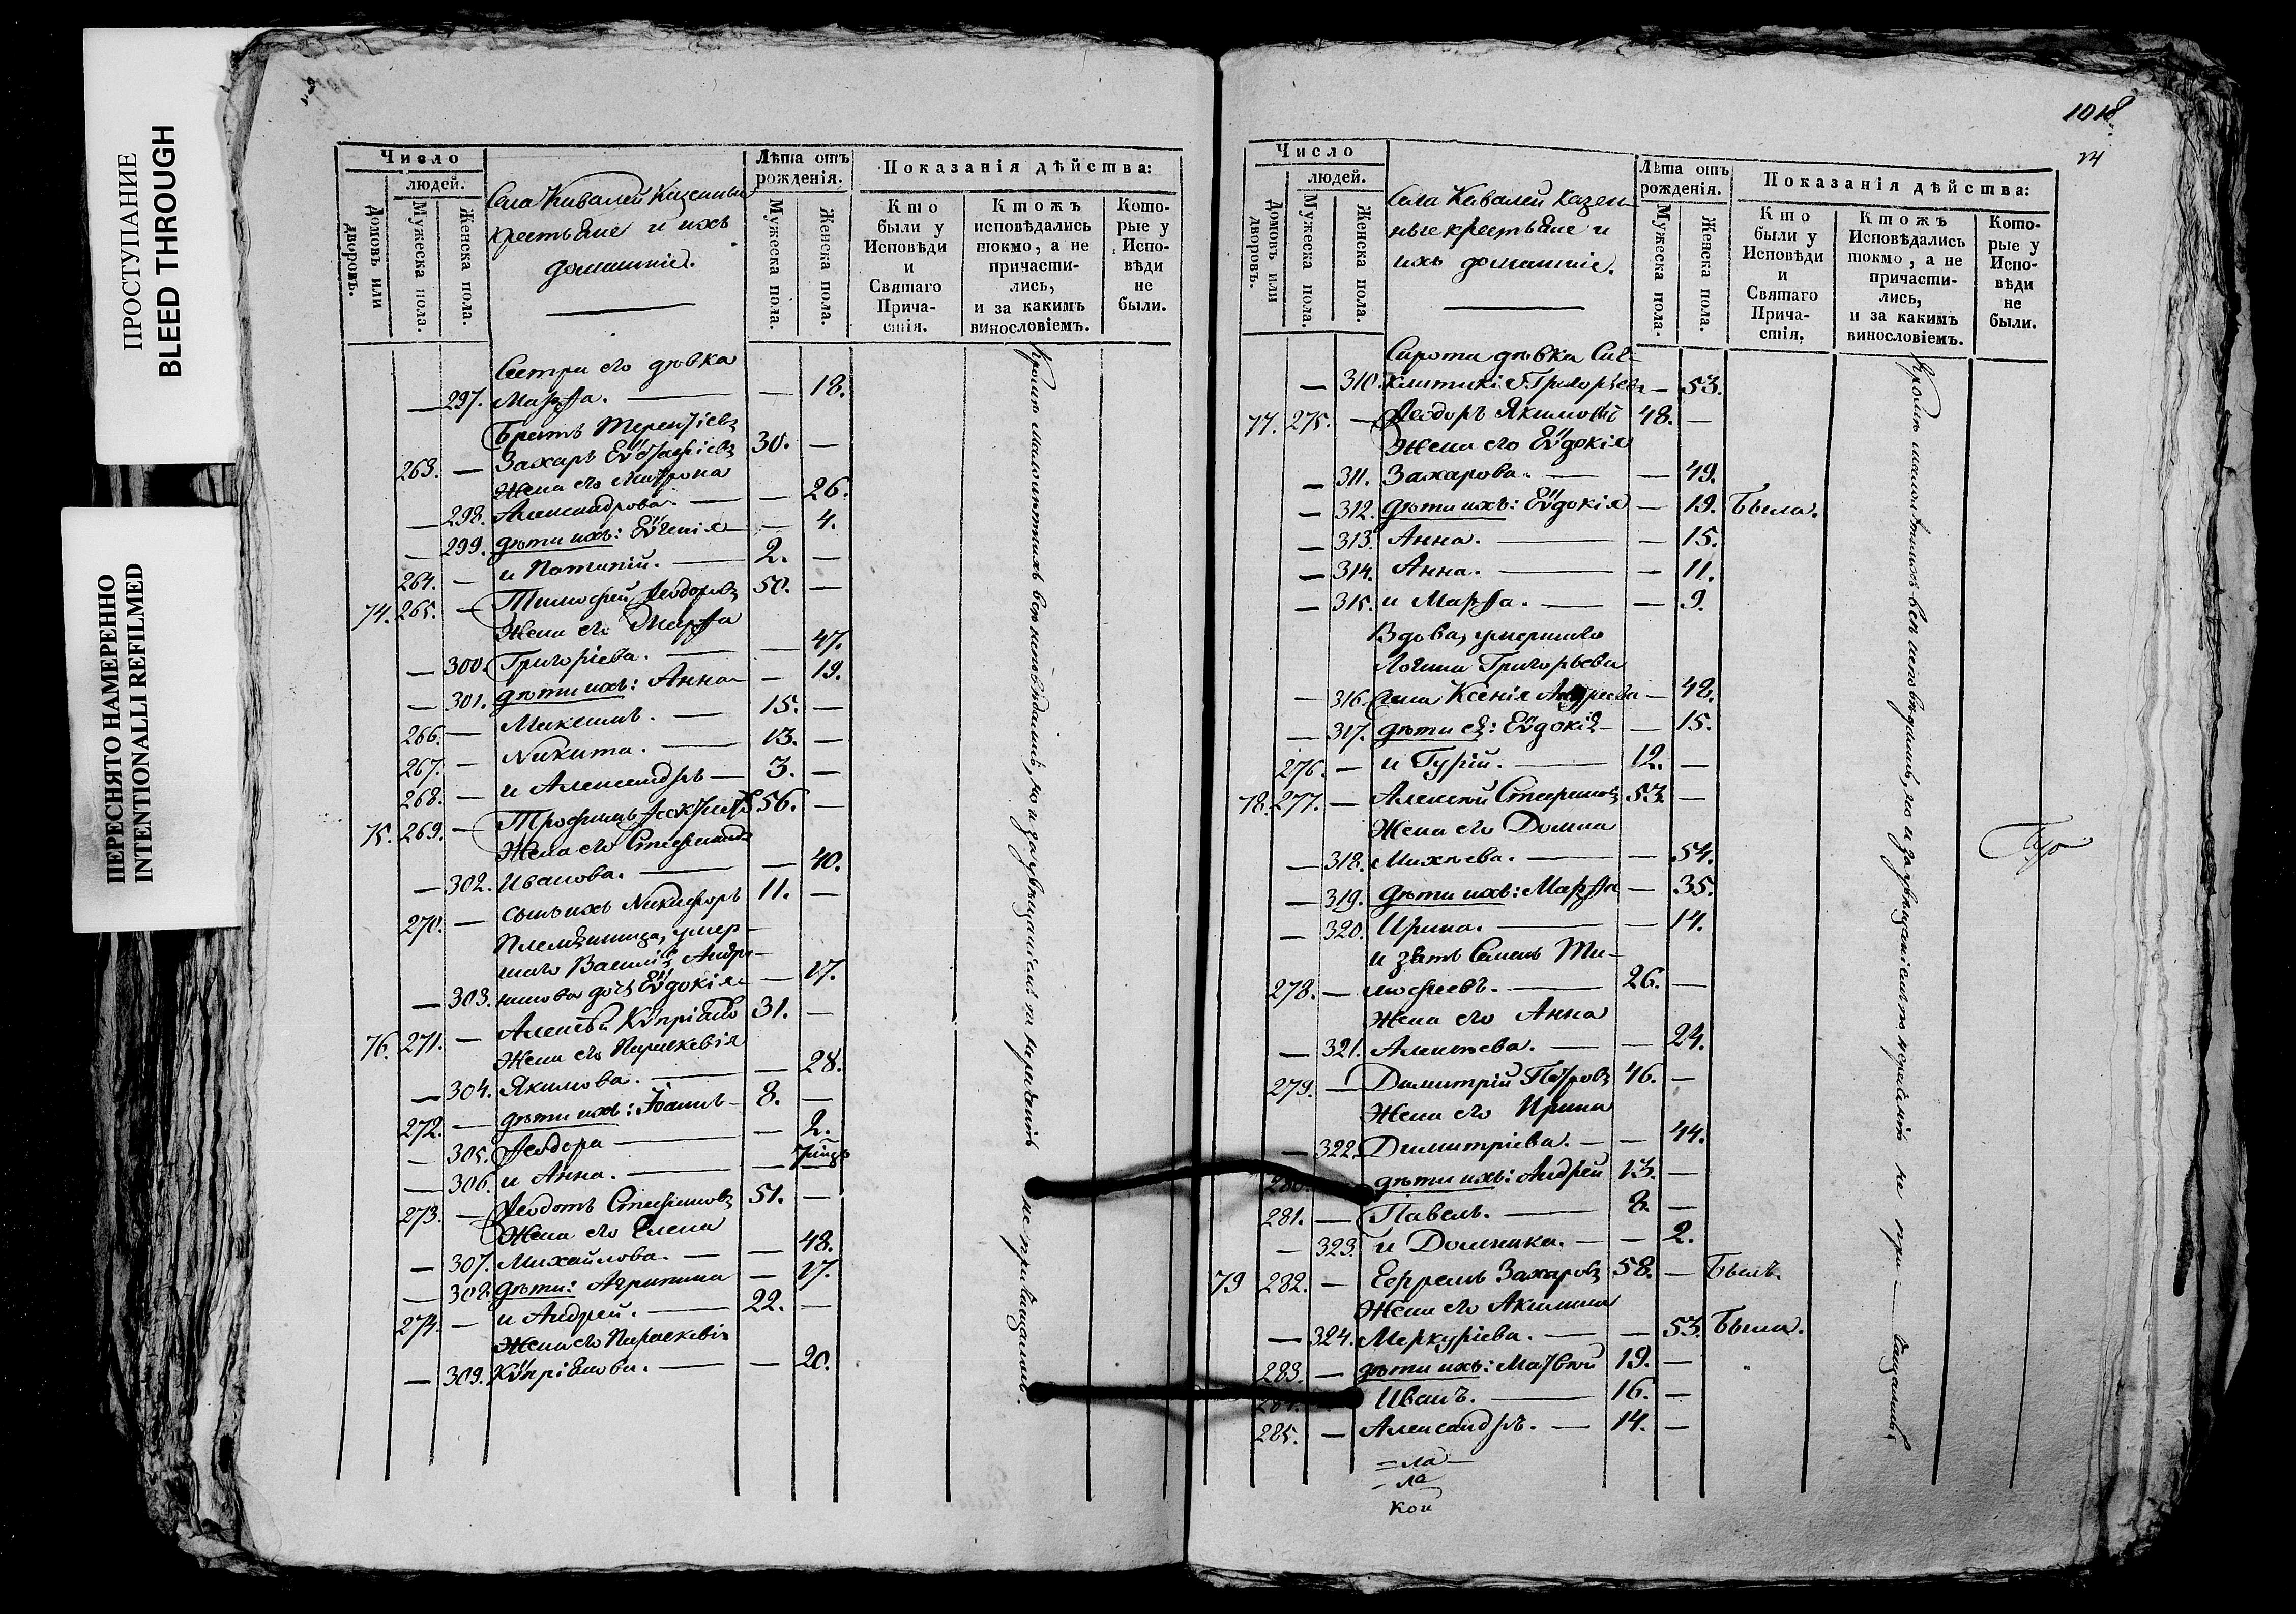 ПРОСТУПАНИЕ
BLEED THROUGH
ПЕРЕСНЯТО НАМЕРЕННО
INTENTIONALLI REFILMED
Число
людей.
Домовъ или дворовъ.
Мужеска пола.
Женска пола.
Села Ковалей Казенные
крестьяне и ихъ
домашніе.
Лѣта отъ рожденія.
Мужеска пола.
Женска пола.
Показанія дѣйства:
Кто были у Исповѣди и Святаго Прича-стія.
Ктожъ исповѣдались токмо, а не причасти-лись, и за какимъ винословіемъ.
Кото-рые у Испо-вѣди не были.
Сестра его дѣвка
— 297. Марѳа. — — 18.
Братъ Терентіевъ
263. — Захаръ Еѵстафіевъ 30. —
Жена его Матрона
— 298. Александрова. — — 26.
— 299. дѣти ихъ: Еѵгенія — 4.
264. — и Потапій. — 2. —
74. 265. — Тимофей Ѳеодоровъ 50. —
Жена его Марѳа
— 300. Григоріева. — — 47.
— 301. дѣти ихъ: Анна — 19.
266. — Максимъ. — 15. —
267. — Никита. — 13. —
268. — и Александръ — 3. —
75. 269. — Трофимъ 56. —
Жена его Стефанида
— 302. Иванова. — — 40.
270. — сынъ ихъ Никифоръ 11. —
Племянница, умер-
шаго Василія Андре-
— 303. дочь Еѵдокія — 17.
76. 271. — Алексѣй Кѵпріяно 31. —
Жена его Параскевія
— 304. Якимова. — — 28.
272. — дѣти ихъ: Іоаннъ 8. —
— 305. Ѳеодора — — 2.
— 306. и Анна. — —
273. — Ѳеодотъ Стефановъ 51. —
Жена его Елена
— 307. Михайлова. — — 48.
— 308. дѣти: Агрипина — 17.
274. — и Андрей. — 22. —
Жена его Параскевія
— 309. Кѵпріянова. — — 20.
Кромѣ малолѣтнихъ всѣ исповѣдались, но за не причащались.
1018
Число
людей.
Домовъ или дворовъ.
Мужеска пола.
Женска пола.
Села Ковалей Казен-
ные крестьяне и
ихъ домашніе.
Лѣта отъ рожденія.
Мужеска пола.
Женска пола.
Показанія дѣйства:
Кто были у Исповѣди и Святаго Прича-стія.
Ктожъ Исповѣдались токмо, а не причасти-лись, и за какимъ винословіемъ.
Кото-рые у Испо-вѣди не были.
Сирота дѣвка Син-
— 310. клитикія Григорьева — 53.
77. 275. — Ѳеодоръ Якимовъ 48. —
Жена его Еѵдокія
— 311. Захарова. — — 49.
— 312. дѣти ихъ: Еѵдокія — 19. Была.
— 313. Анна. — — 15.
— 314. Анна. — — 11.
— 315. и Марѳа. — — 9.
Вдова, умершаго
Логина Григорьева
— 316. жена Ксенія Андреева — 48.
— 317. дѣти ея: Еѵдокія — 15.
276. — и Гурій. — 12. —
78. 277. — Алексѣй Стефановъ 53. —
Жена его Домна
— 318. Михѣева. — — 54.
— 319. дѣти ихъ: Марѳа — 35.
— 320. Ирина. — — 14.
и зять Семенъ Ти-
278. — мофеевъ. — 26. —
Жена его Анна
— 321. Алексѣева. — — 24.
279. — Димитрій Петровъ 46. —
Жена его Ирина
— 322. Димитріева. — — 44.
280. — дѣти ихъ: Андрей 13. —
281. — Павелъ. — 8. —
— 323. и Домника. — — 2.
79 282. — Ефремъ Захаровъ 58. — Былъ.
Жена его Акилина
— 324. Меркуріева. — — 53. Была.
283. — дѣти ихъ: Матвѣй 19. —
284. Иванъ. — 16. —
285. — Александръ. — 14. —
Кромѣ всѣ исповѣдались, но не при-чащались.
—ла—
ла
кой